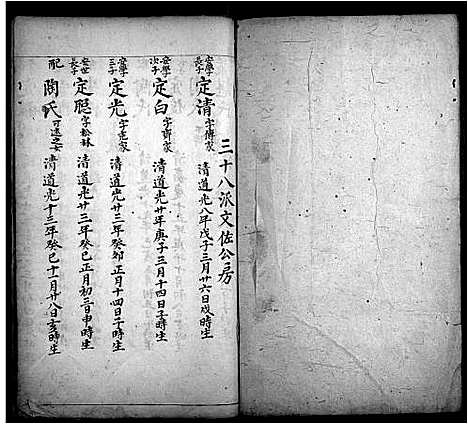 三十八派文佐公房
安學長子 定清 字傳家 清道光八年戊子三月廿六日戌時生
安學次子 定白 字齊家 清道光廿年庚子三月十四日子時生
安學三子 定光 字克家 清道光廿三年癸卯正月十四日子時生
安世長子 定聪 字松林 清道光十三年癸巳正月初三日申時生
配 陶氏 可遠之女 清道光十三年癸巳十一月廿八日亥時生